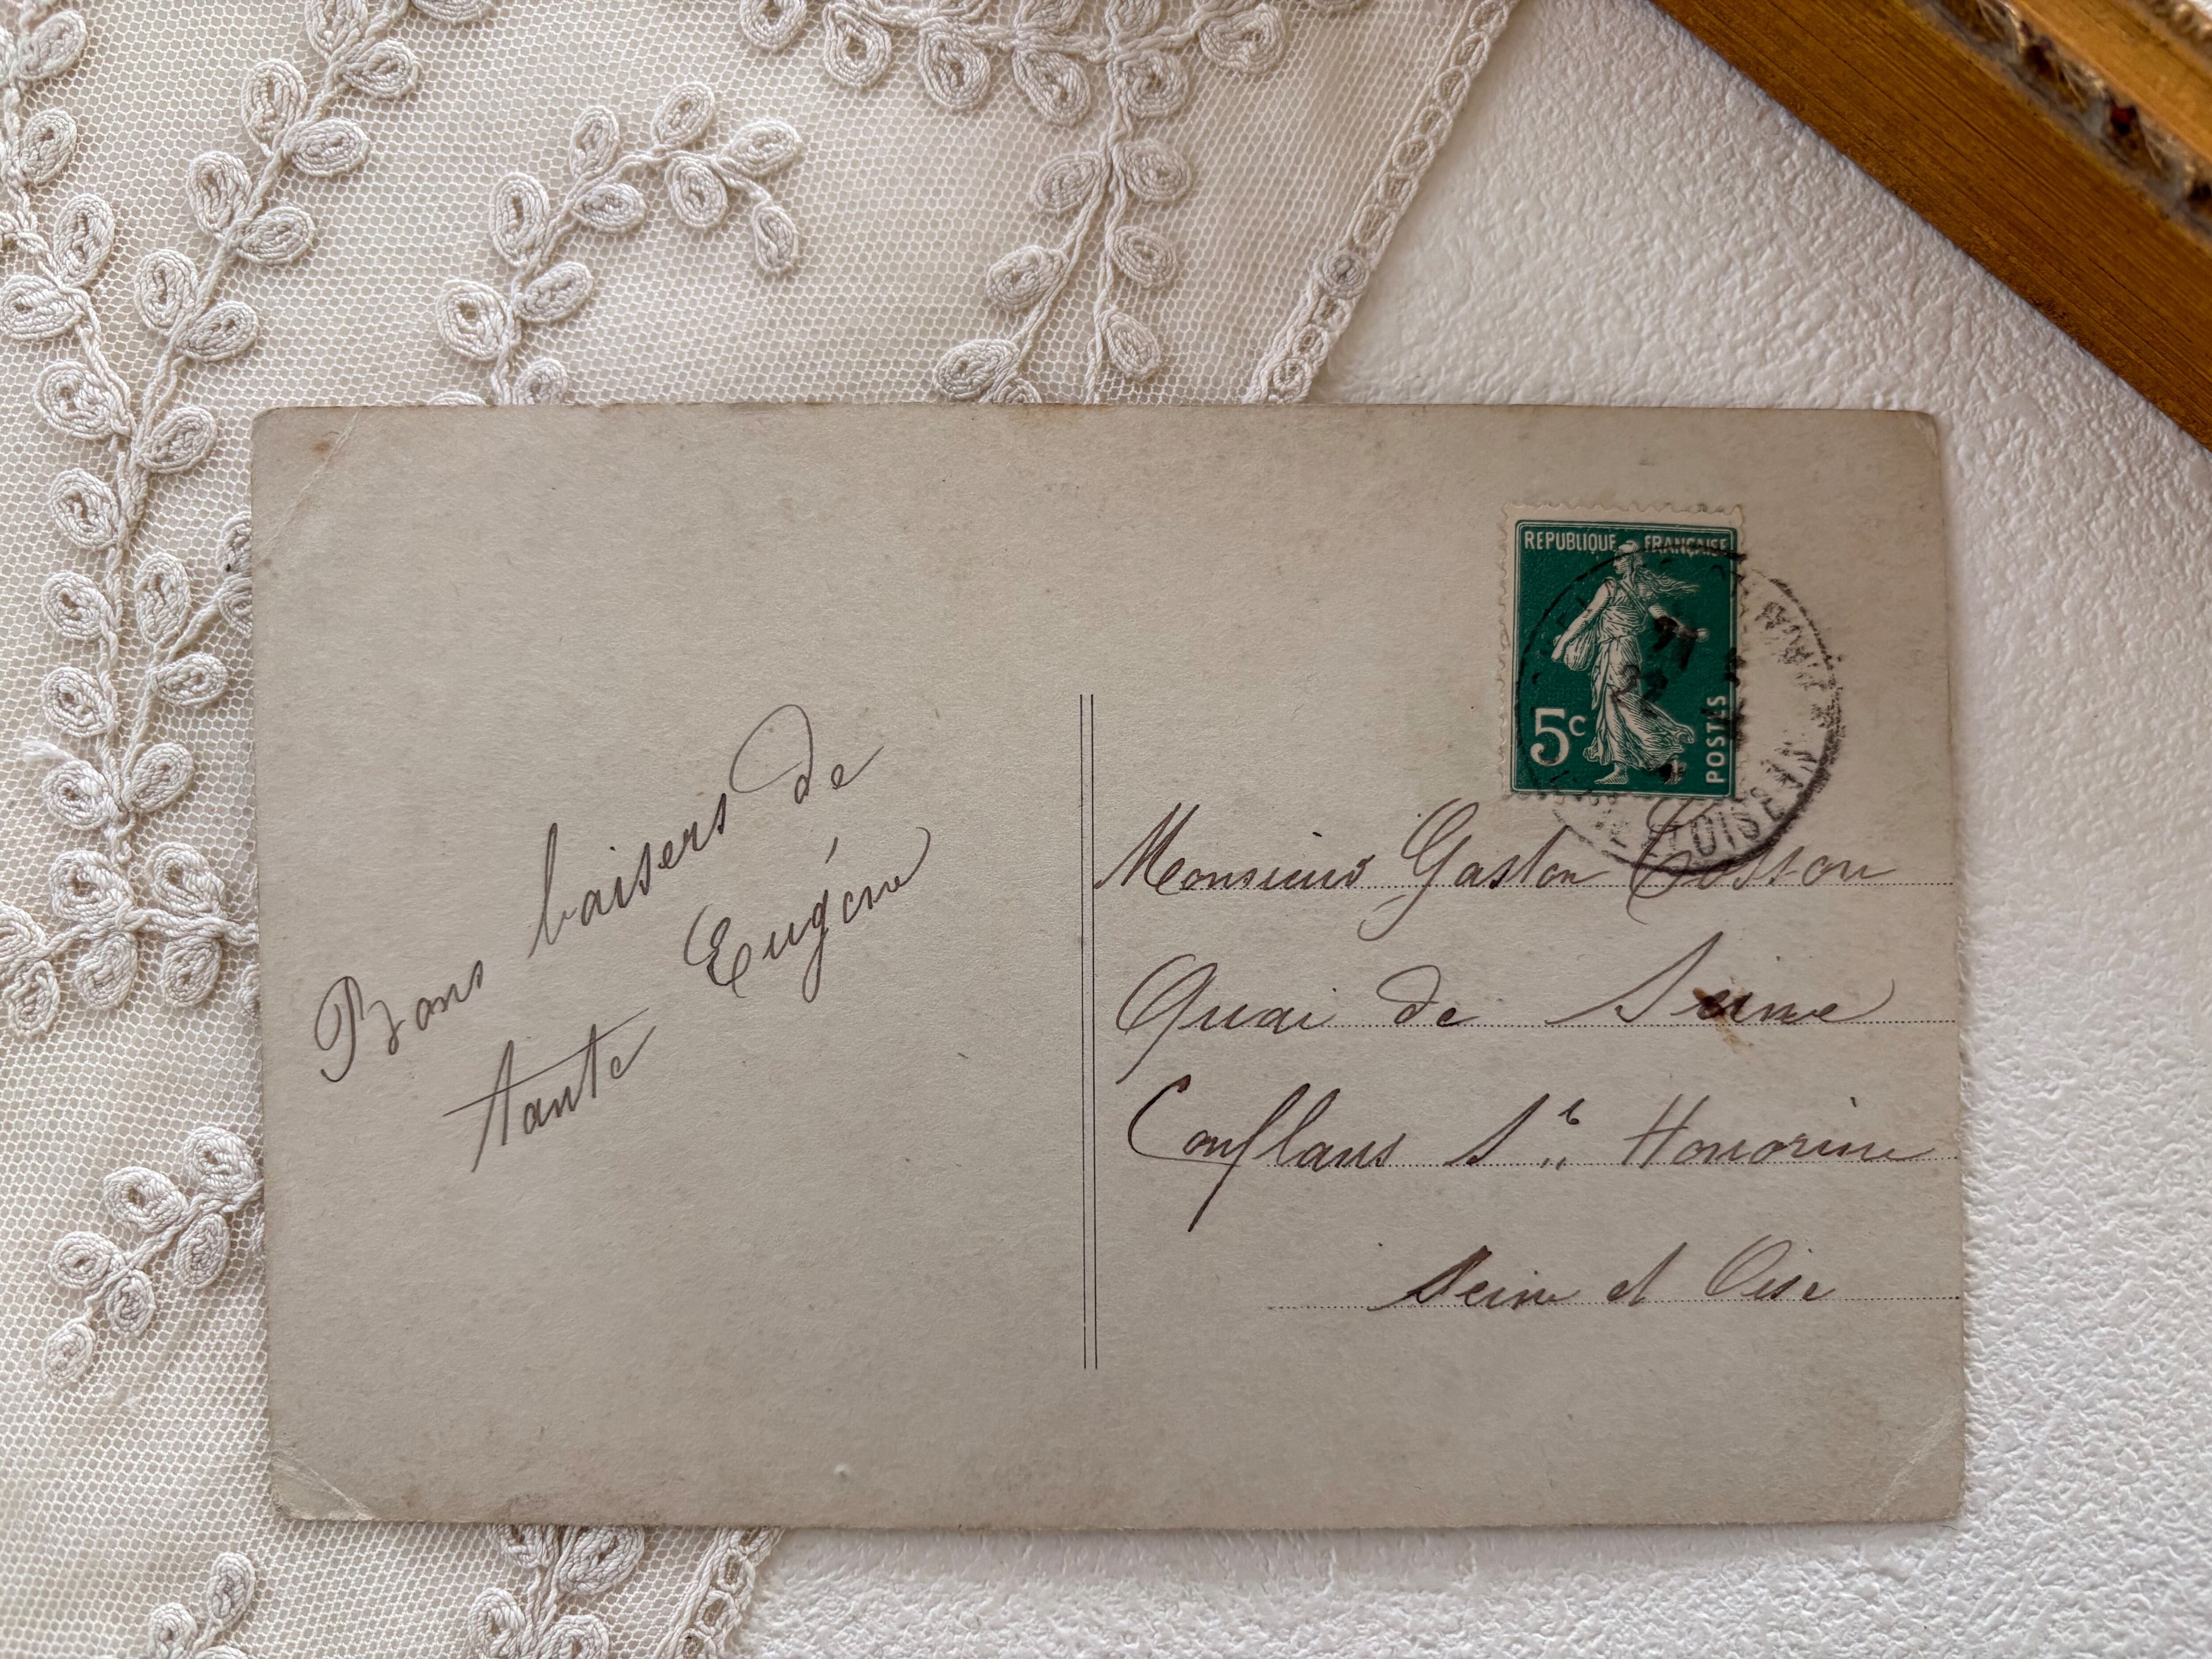 Bons baisers de
tante Eugénie
REPUBLIQUE FRANÇAISE
5c
POSTES
Monsieur Gaston Cosson
Quai de Seine
Conflans Ste Honorine
Seine et Oise